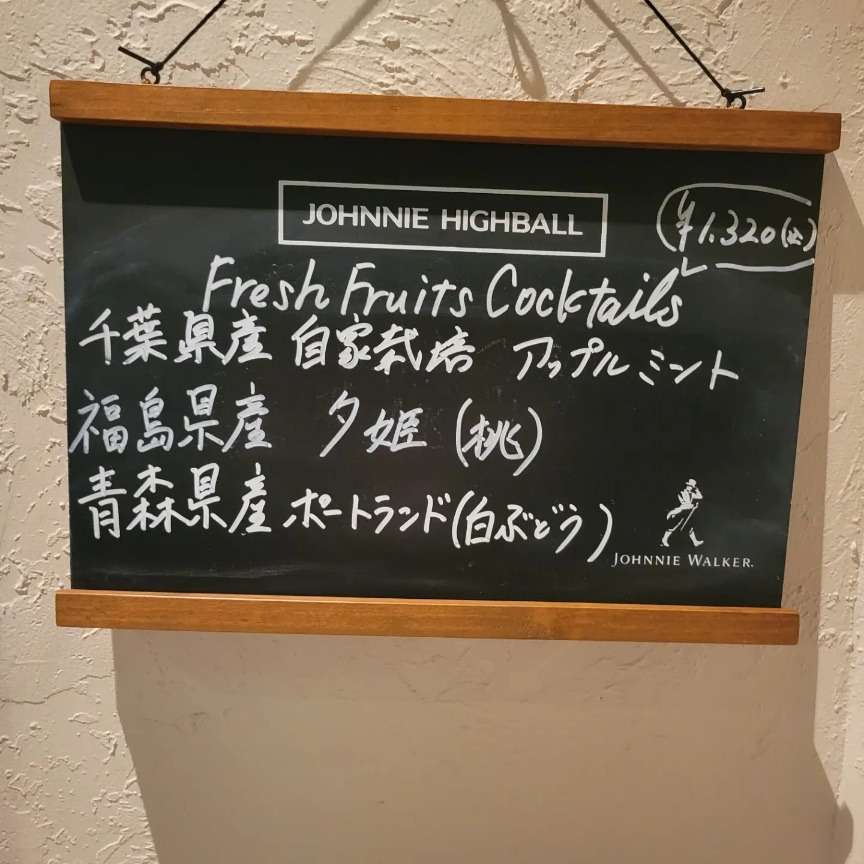 JOHNNIE HIGHBALL
¥1.320(込)
Fresh Fruits Cocktails
千葉県産 自家栽培 アップルミント
福島県産 夕姫 (桃)
青森県産 ポートランド(白ぶどう)
JOHNNIE WALKER.